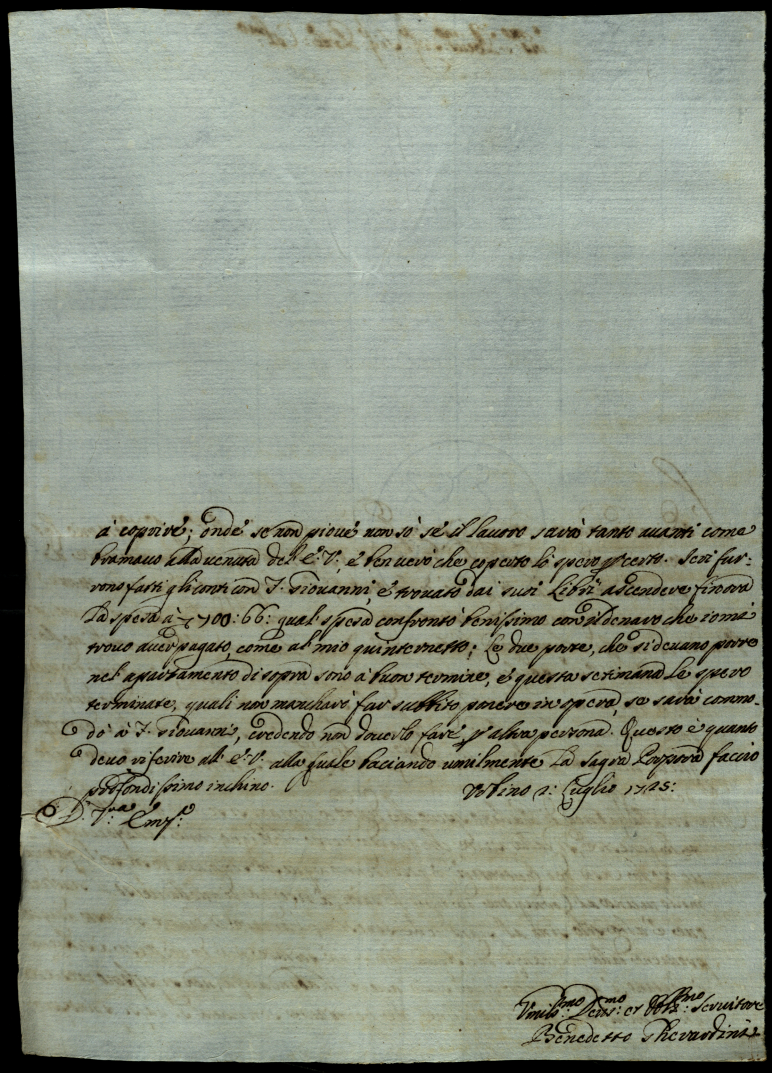 à coprire; onde se non piove non sò se il lavoro sarà tanto avanti come
bramavo alla venuta dell'E.V., è ben vero che coperto lo spero p certo. Ieri fur-
rono fatti gli conti con J. Giovanni, è trovato dai suoi Libri ascendere finora
la spesa à 700: 66: qual spesa confrontò benissimo con il denaro che io mi
trovo aver pagato, come al mio quinternetto; Le due porte, che si devano porre
nel apartamento di sopra sono à buon termine, è questa settimana le spero
terminate, quali non mancharò far subbito ponere in opera, se sarà commo-
do à J. Giovanni, credendo non doverlo fare p altra persona. Questo è quanto
devo riferire all' E.V. alla quale baciando umilmente la Sagra Porpora faccio
profondissimo inchino. Urbino 1: Luglio 1725:
D. V.ra Em.
Umiliss.mo Devs.mo et Obb.mo Servitore
Benedetto Gherardini